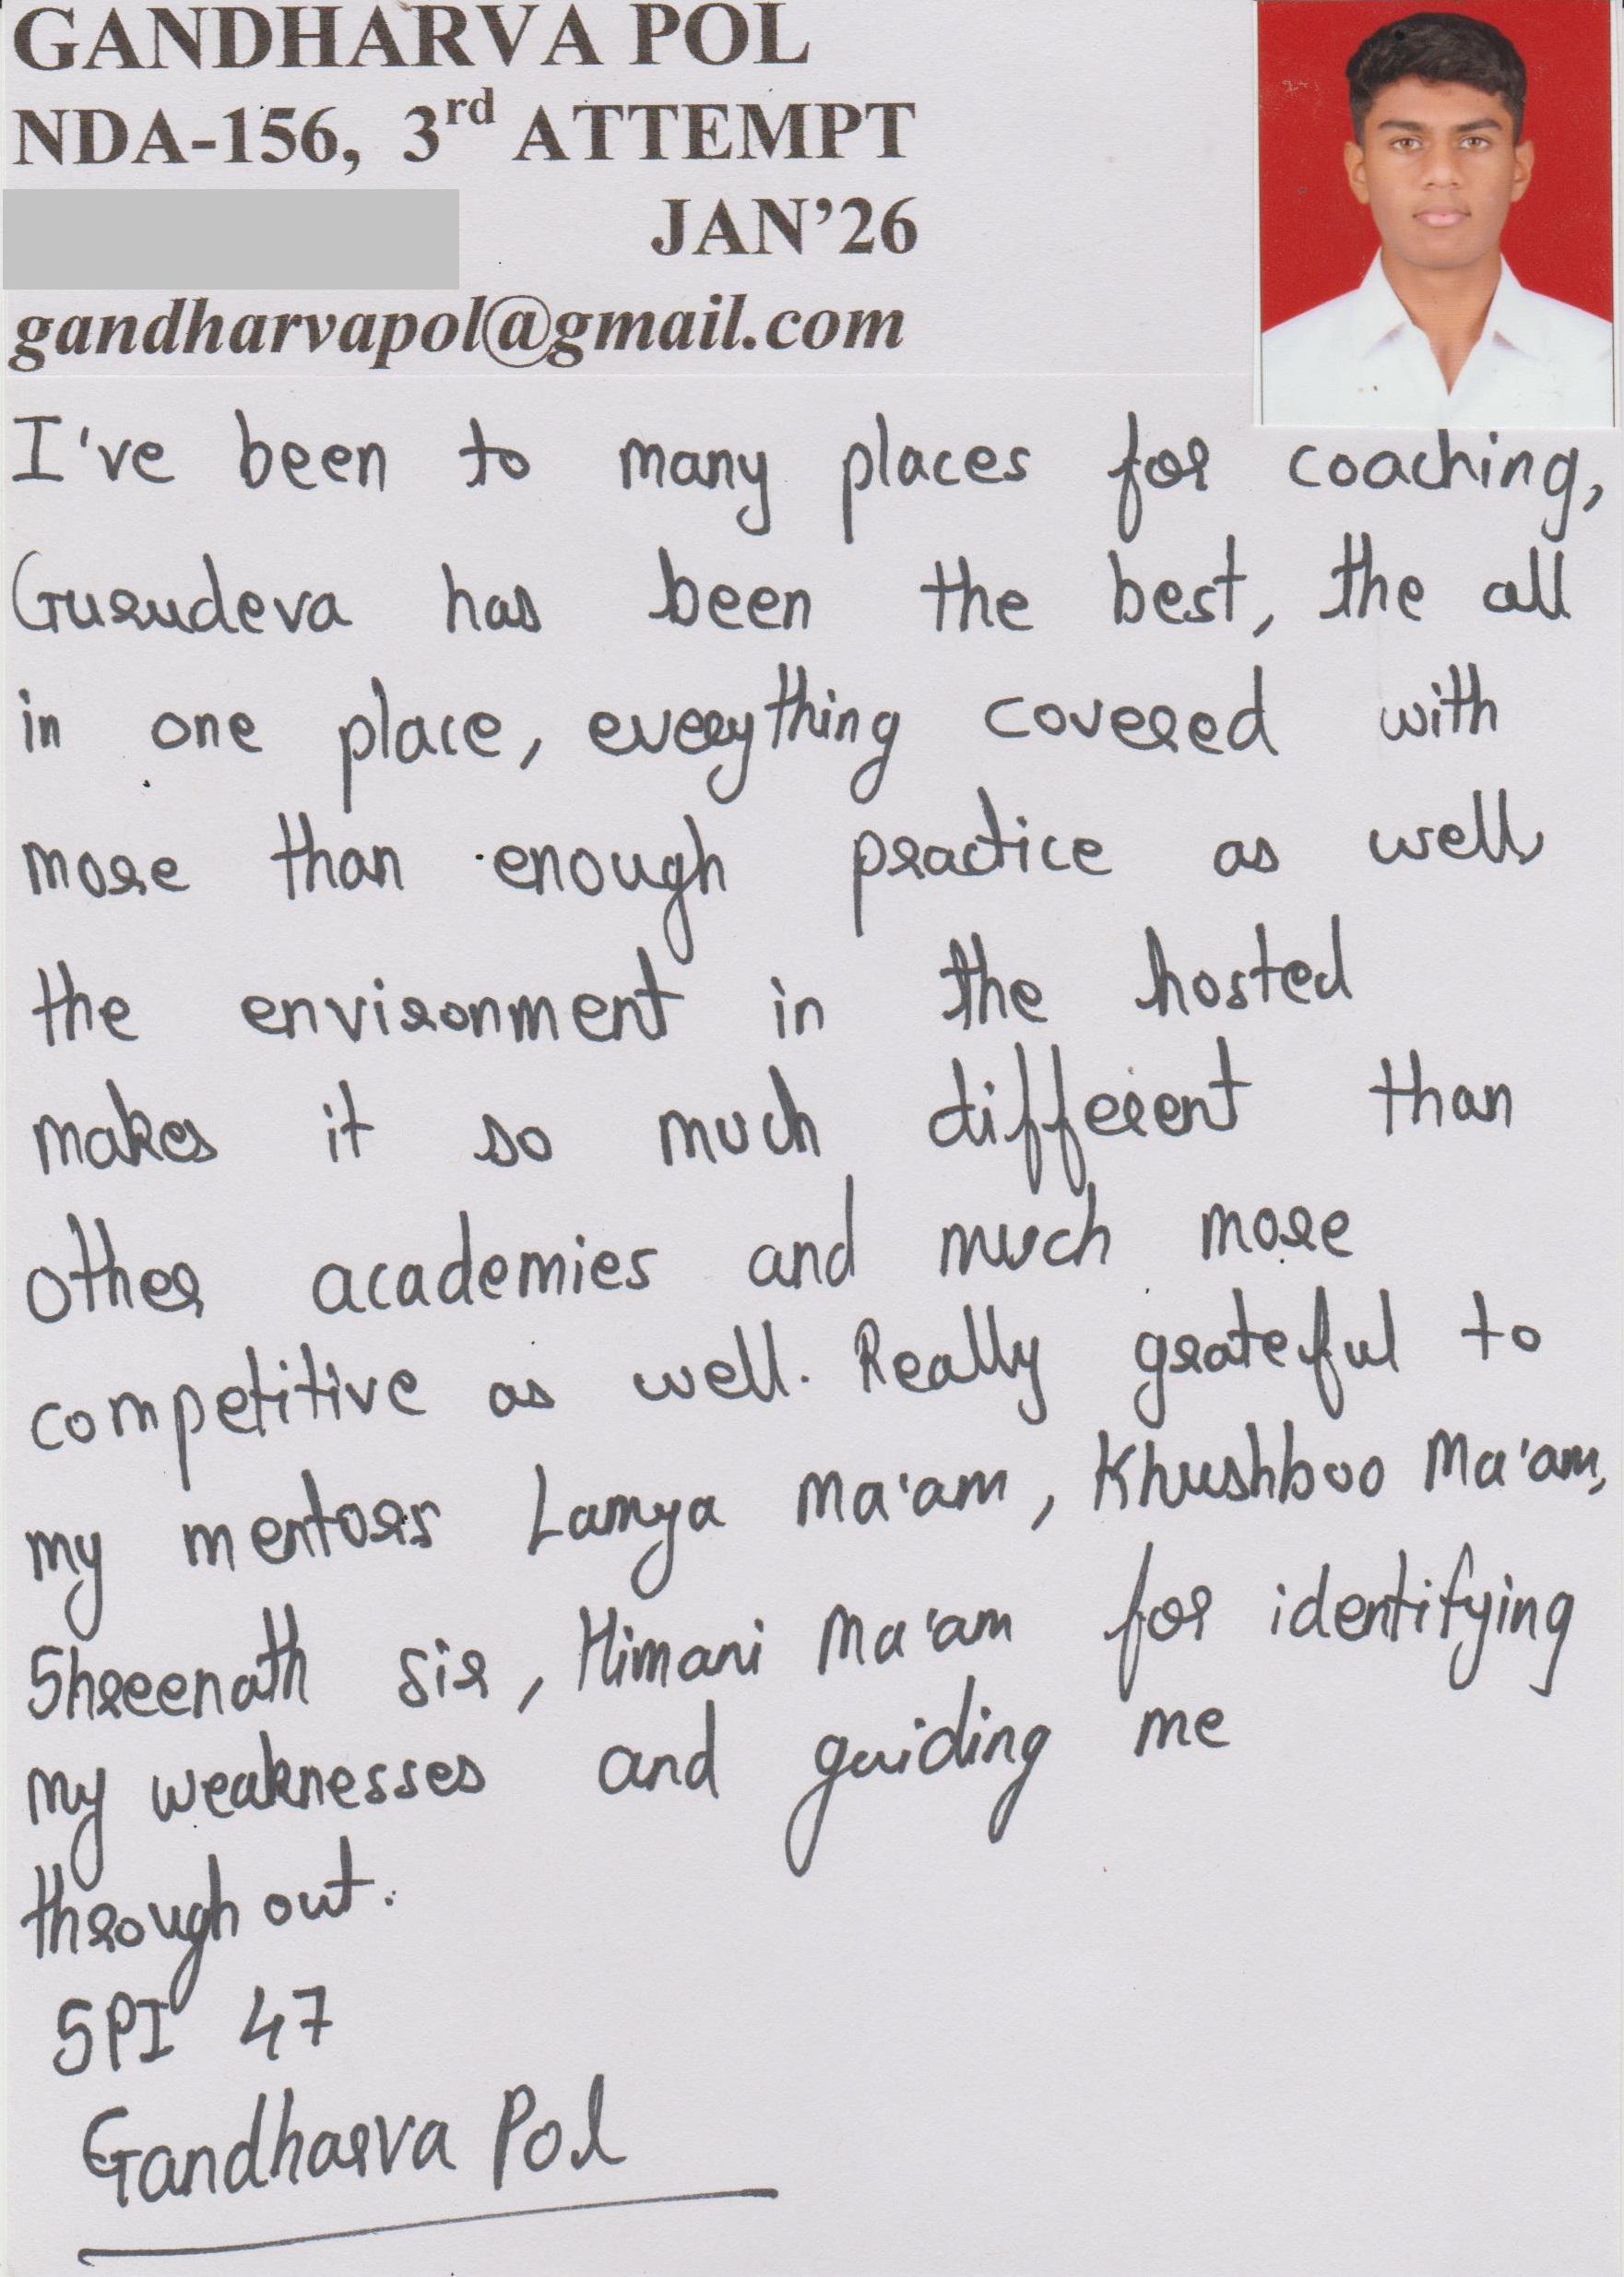 GANDHARVA POL
NDA-156, 3rd ATTEMPT
JAN'26
gandharvapol@gmail.com
I've been to many places for coaching,
Gurudeva has been the best, the all
in one place, everything covered with
more than enough practice as well,
the environment in the hosted
makes it so much different than
other academies and much more
competitive as well. Really grateful to
my mentors Lamya Ma'am, Khushboo Ma'am,
Shreenath sir, Himani Ma'am for identifying
my weaknesses and guiding me
through out.
SPI 47
Gandharva Pol